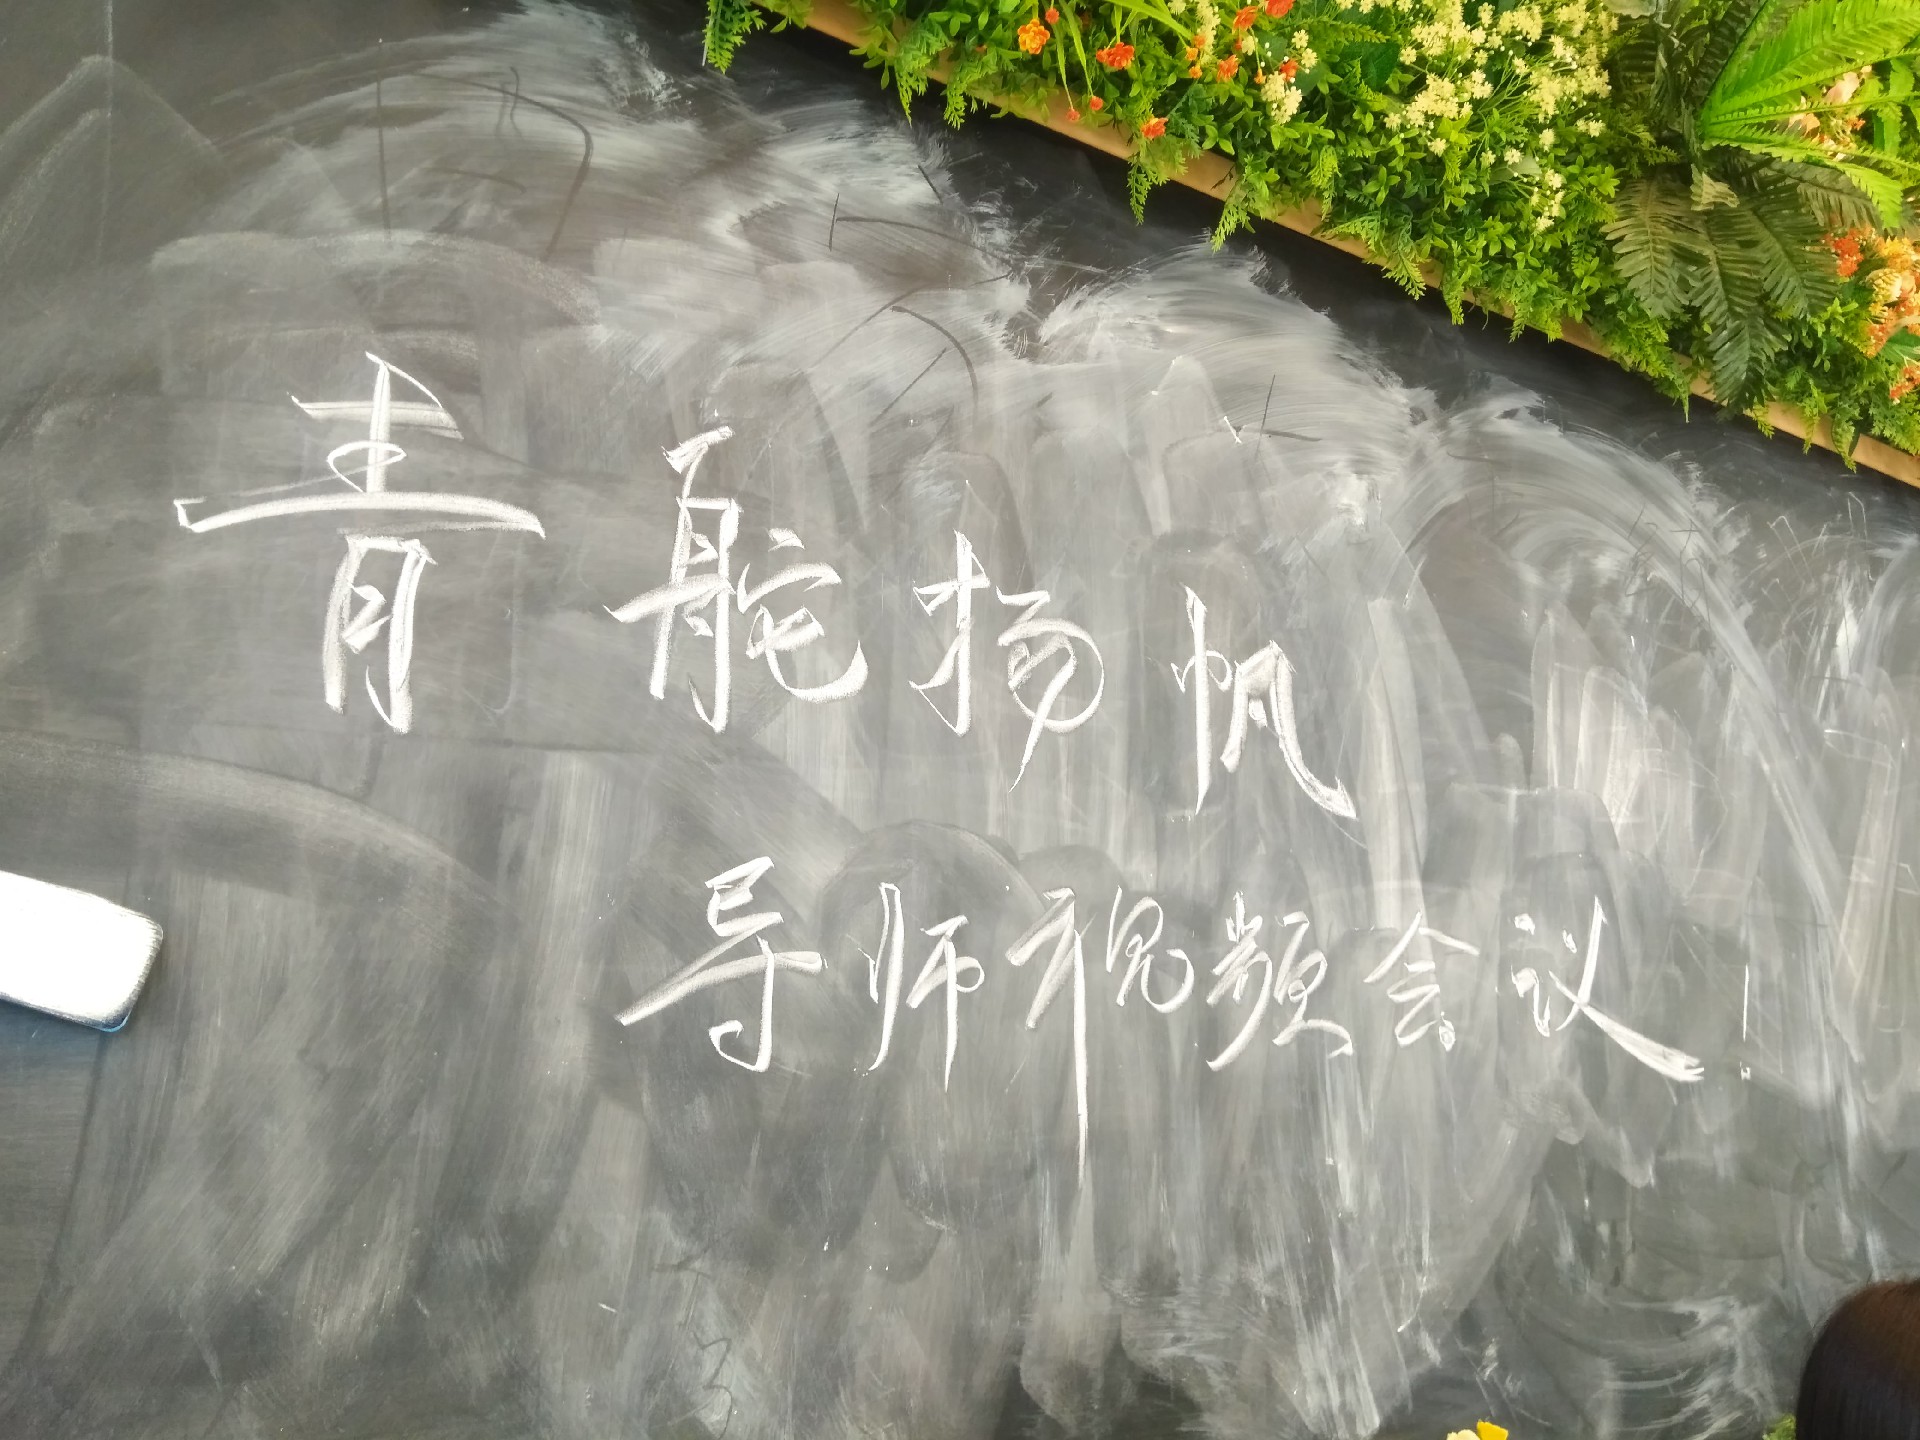 青舵扬帆
导师视频会议!